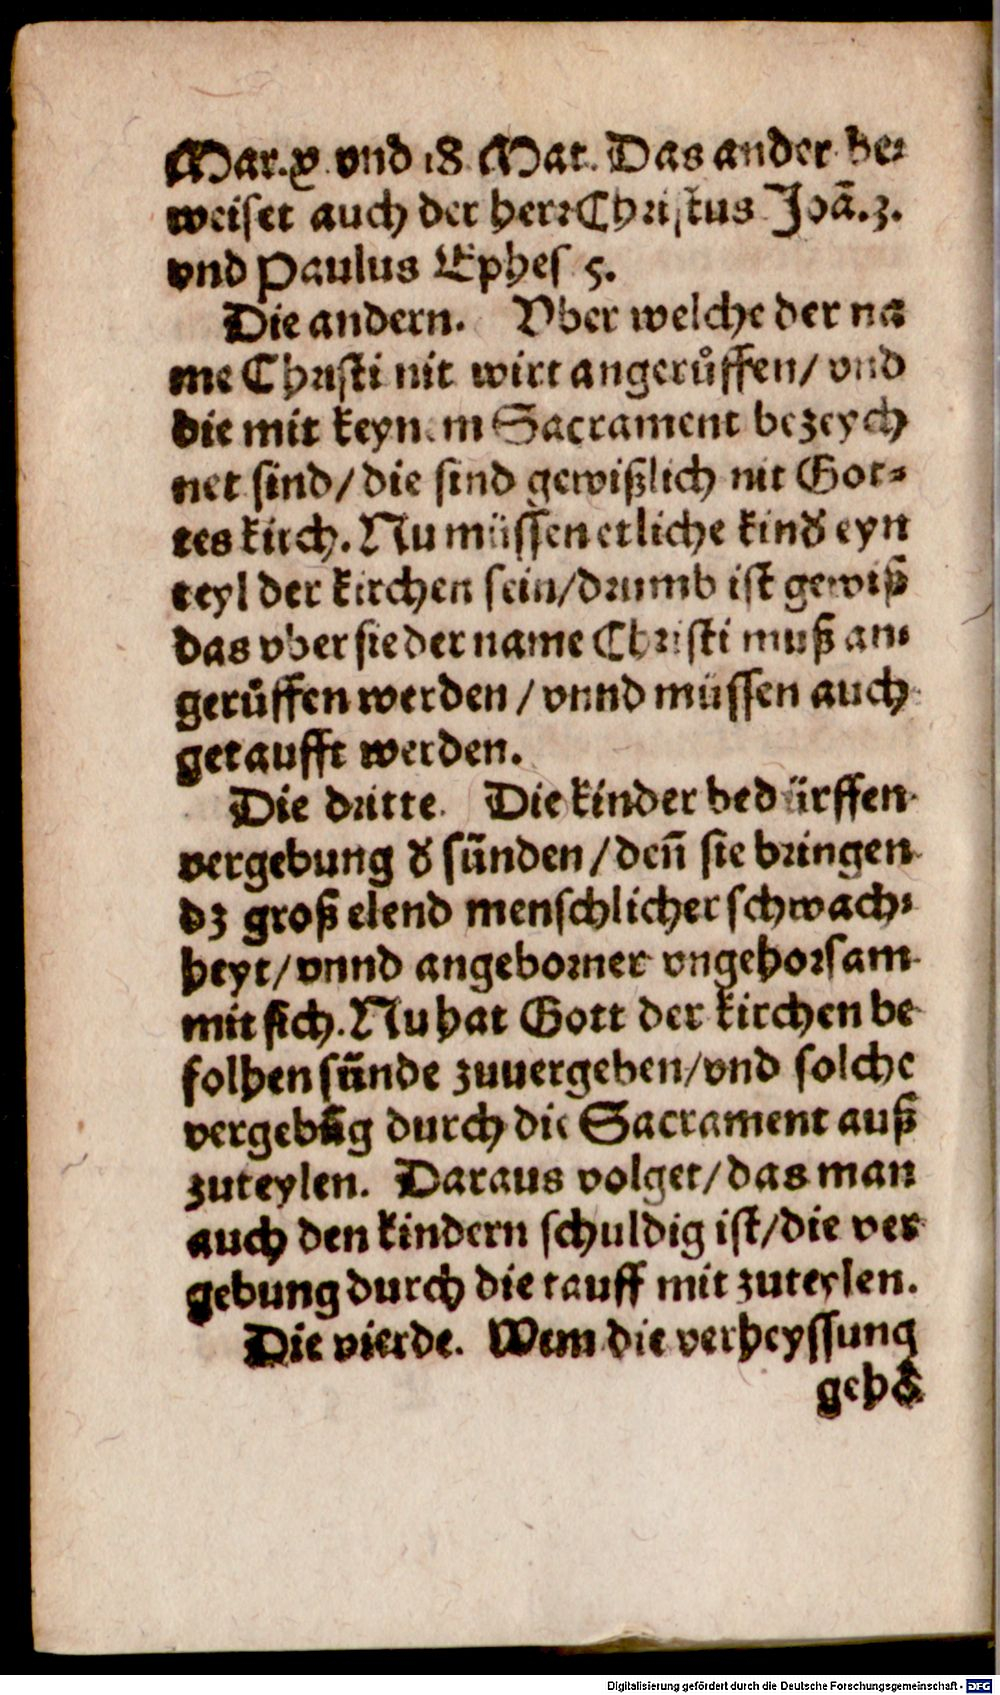 Mar.x. vnd 18 Mat. Das ander be⸗
weiset auch der herr Christus Joã.3.
vnd Paulus Ephes 5.
Die andern. Vber welche der na
me Christi nit wirt angerůffen/ vnd
die mit keynem Sacrament bezeych
net sind/ die sind gewißlich nit Got⸗
tes kirch. Nu müssen etliche kinð eyn
teyl der kirchen sein/drumb ist gewiß
das vber sie der name Christi muß an⸗
gerůffen werden / vnnd müssen auch
getaufft werden.
Die dritte. Die kinder bedürffen
vergebung ð sünden / deñ sie bringen
dz groß elend menschlicher schwach⸗
heyt/ vnnd angeborner vngehorsam
mit sich. Nu hat Gott der kirchen be
folhen sünde zuuergeben/vnd solche
vergebũg durch die Sacrament auß
zuteylen. Daraus volget/ das man
auch den kindern schuldig ist/die ver
gebung durch die tauff mit zuteylen.
Die vierde. Wem die verheyssung
gehö
Digitalisierung gefördert durch die Deutsche Forschungsgemeinschaft - DFG